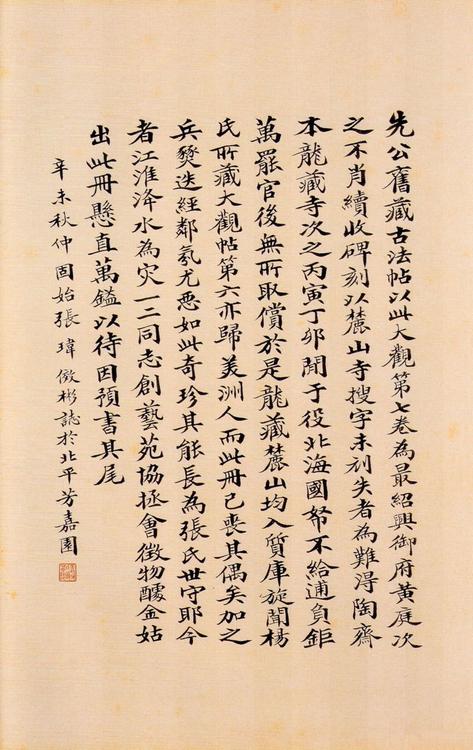 先公舊藏古法帖以此大觀第七卷為最紹興御府黃庭次
之不肖續收碑刻以麓山寺搜字未刓失者為難得陶齋
本龍藏寺次之丙寅丁卯閒于役北海國帑不給逋負鉅
萬罷官後無所取償於是龍藏麓山均入質庫旋聞楊
氏所藏大觀帖第六亦歸美洲人而此冊已喪其偶矣加之
兵燹迭經鄰氛尤惡如此奇珍其能長為張氏世守耶今
者江淮洚水為灾一二同志創藝苑協拯會徵物醵金姑
出此冊懸直萬鎰以待因預書其尾
辛未秋仲固始張瑋傚彬誌於北平芳嘉園